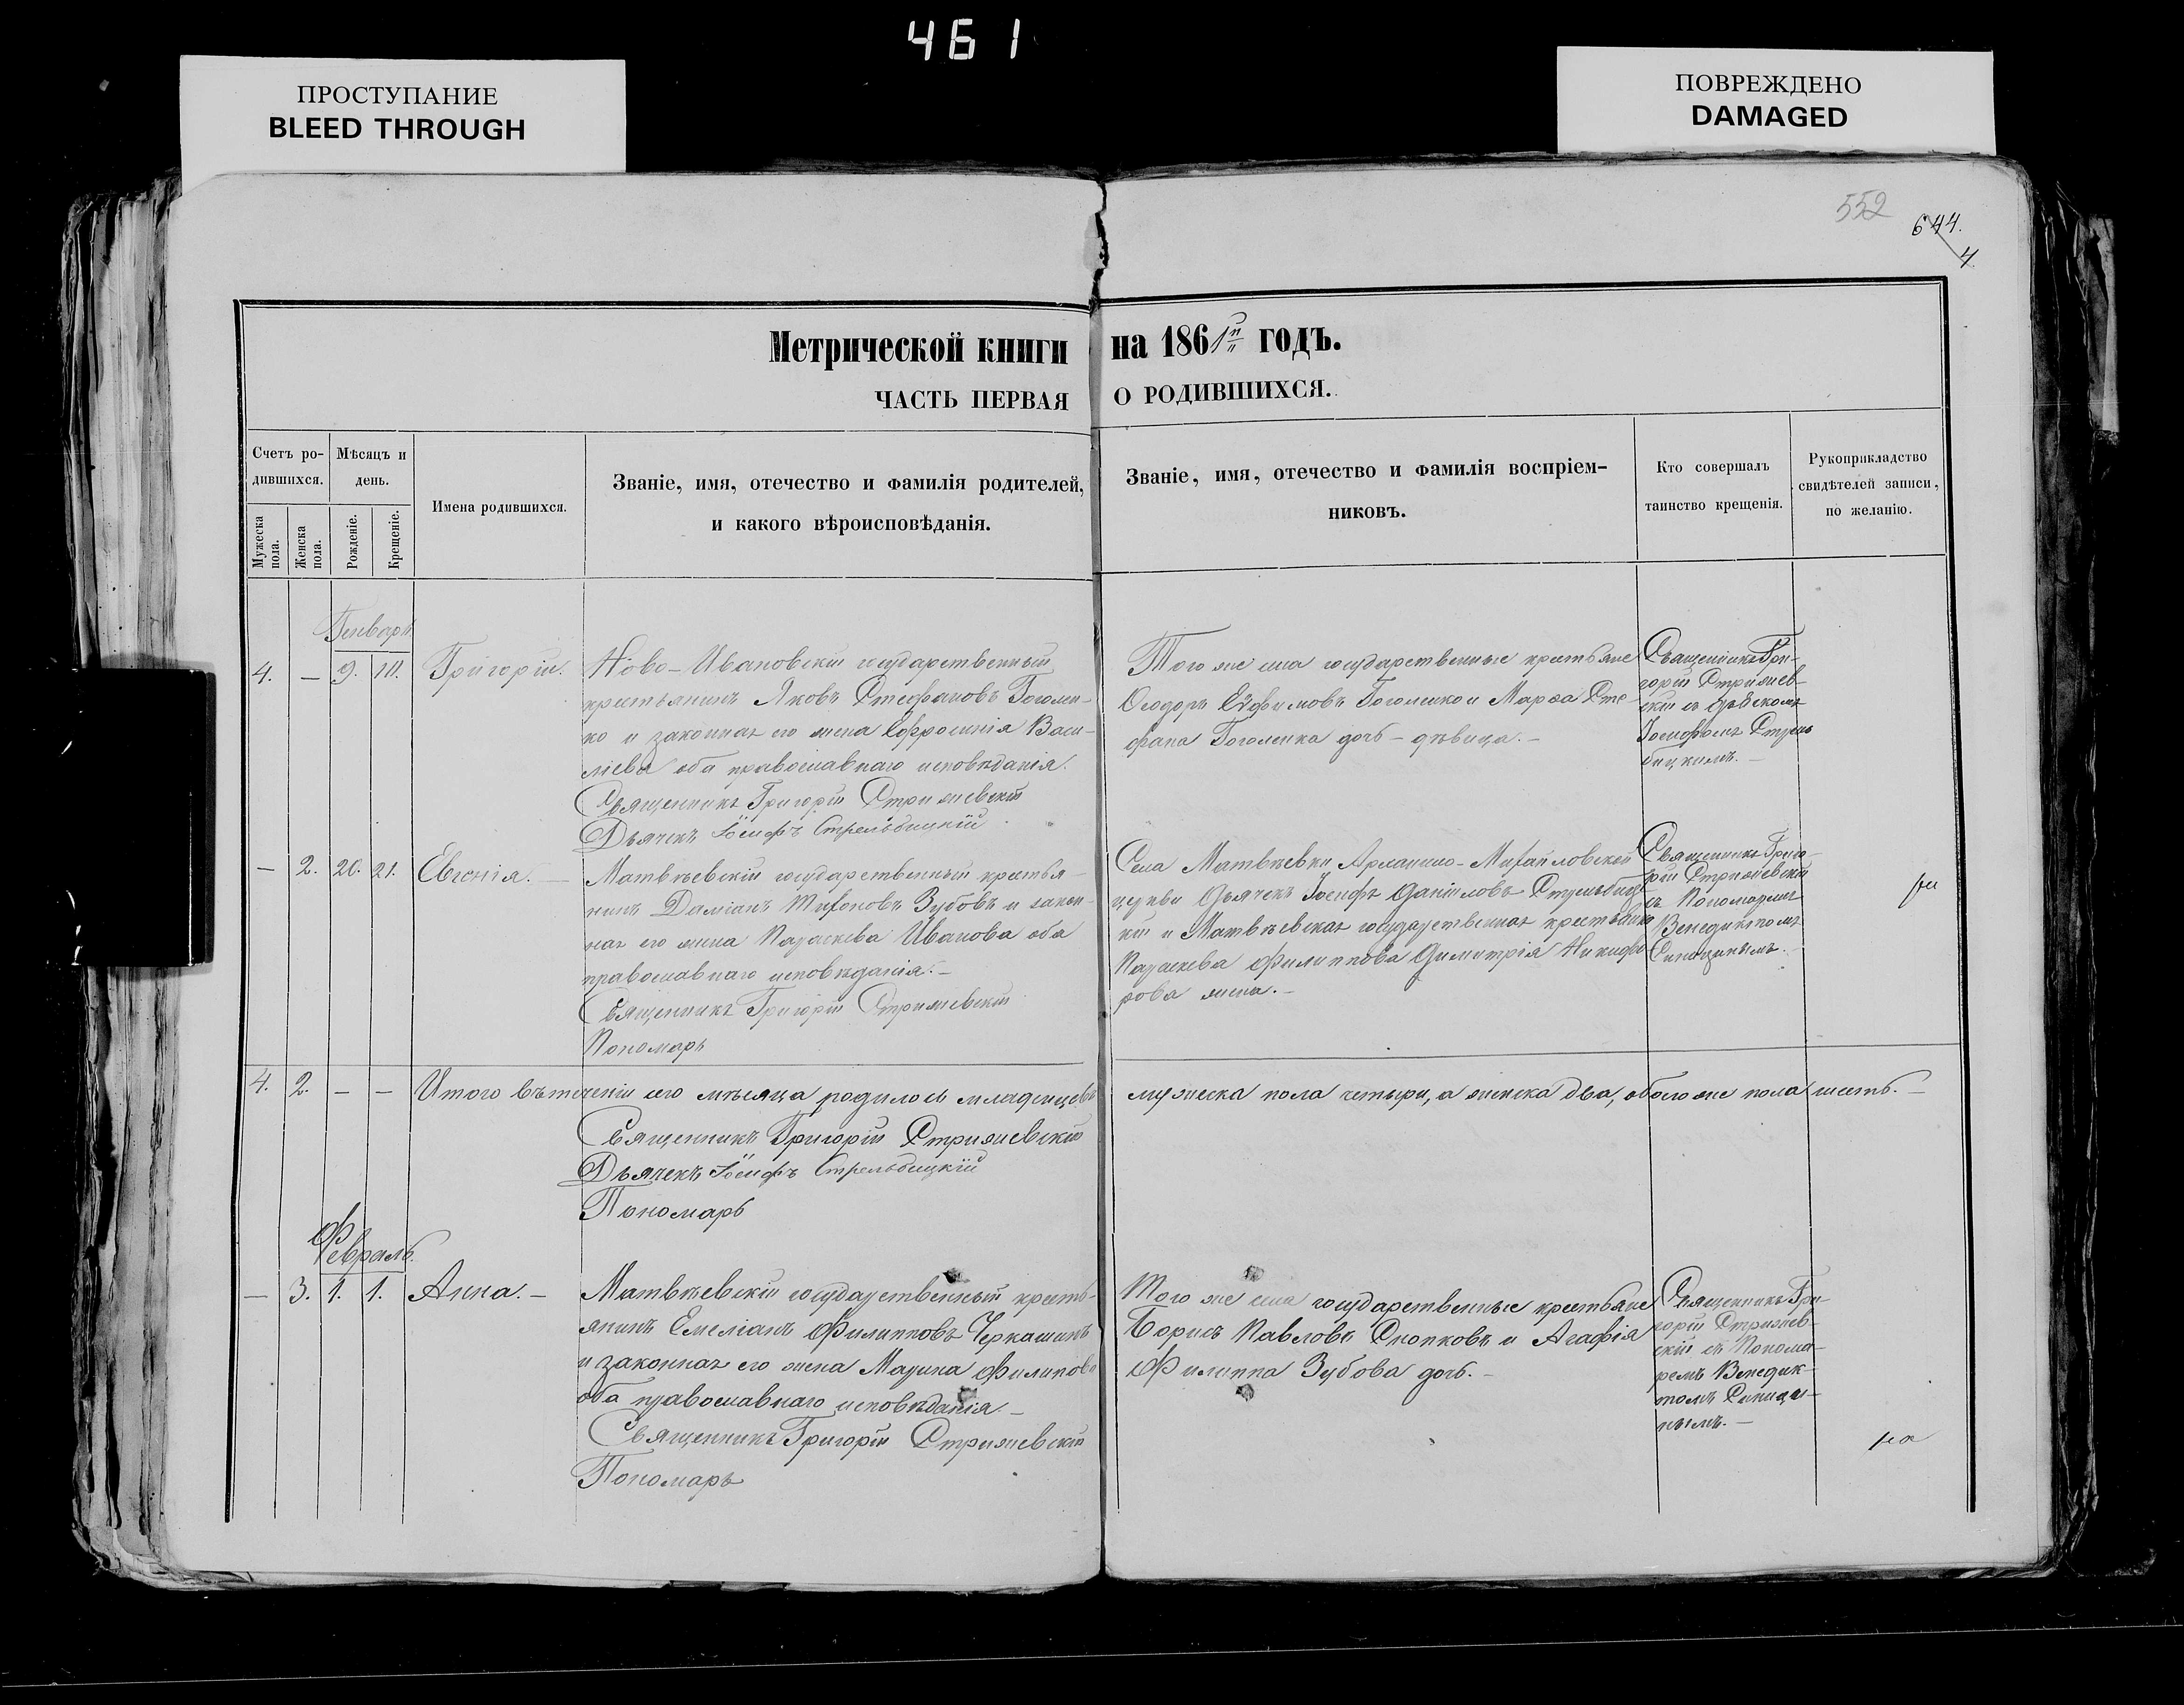 461
ПРОСТУПАНИЕ
BLEED THROUGH
ПОВРЕЖДЕНО
DAMAGED
552
644.
4
Метрической книги на 1861 годъ.
ЧАСТЬ ПЕРВАЯ О РОДИВШИХСЯ.
Счетъ ро-
дившихся.
Мѣсяцъ и
день.
Мужеска
пола.
Женска
пола.
Рожденіе.
Крещеніе.
Имена родившихся.
Званіе, имя, отечество и фамилія родителей,
и какого вѣроисповѣданія.
Званіе, имя, отечество и фамилія воспріем-
никовъ.
Кто совершалъ
таинство крещенія.
Рукоприкладство
свидѣтелей записи,
по желанію.
Генварь
4. — 9. 10. Григорій.
Ново-Ивановскій государственный
крестьянинъ Яковъ Стефановъ Гоголен-
ко и законная его жена Ефросинія Васи-
ліева оба православнаго исповѣданія.
Священникъ Григорій Стрижевскій
Дьячекъ Іосифъ Стрельбицкій
Того же села государственные крестьяне
Ѳеодоръ Евфимовъ Гоголенко и Марѳа Сте-
фана Гоголенка дочь - дѣвица. —
Священникъ Гри-
горій Стрижев-
скій съ Дьячкомъ
Іосифомъ Стрель
бицкимъ. —
— 2. 20. 21. Евгенія. —
Матвѣевскій государственный крестья-
нинъ Даміанъ Тихоновъ Зубовъ и закон-
ная его жена Параскева Иванова оба
православнаго исповѣданія. —
Священникъ Григорій Стрижевскій
Пономарь
Села Матвѣевки Архангело-Михайловской
церкви Дьячекъ Іосифъ Даніиловъ Стрельбиц-
кій и Матвѣевская государственная крестьянка
Параскева Филиппова Димитрія Никифо-
рова жена. —
Священникъ Григо-
рій Стрижевскій
съ Пономаремъ
Венедиктомъ
Синицынымъ.
4. 2. — — Итого въ теченіи сего мѣсяца родилось младенцевъ мужеска пола четыри, а женска два, обоего же пола шесть. —
Священникъ Григорій Стрижевскій
Дьячекъ Іосифъ Стрельбицкій
Пономарь
Февраль.
— 3. 1. 1. Анна. —
Матвѣевскій государственный кресть-
янинъ Емеліанъ Филипповъ Черкашинъ
и законная его жена Марина Филипова
оба православнаго исповѣданія. —
Священникъ Григорій Стрижевскій
Пономарь
Того же села государственные крестьяне
Борисъ Павловъ Снопковъ и Агафія
Филиппа Зубова дочь. —
Священникъ Гри-
горій Стрижев-
скій съ Понома-
ремъ Венедик-
томъ Синицы-
нымъ. —